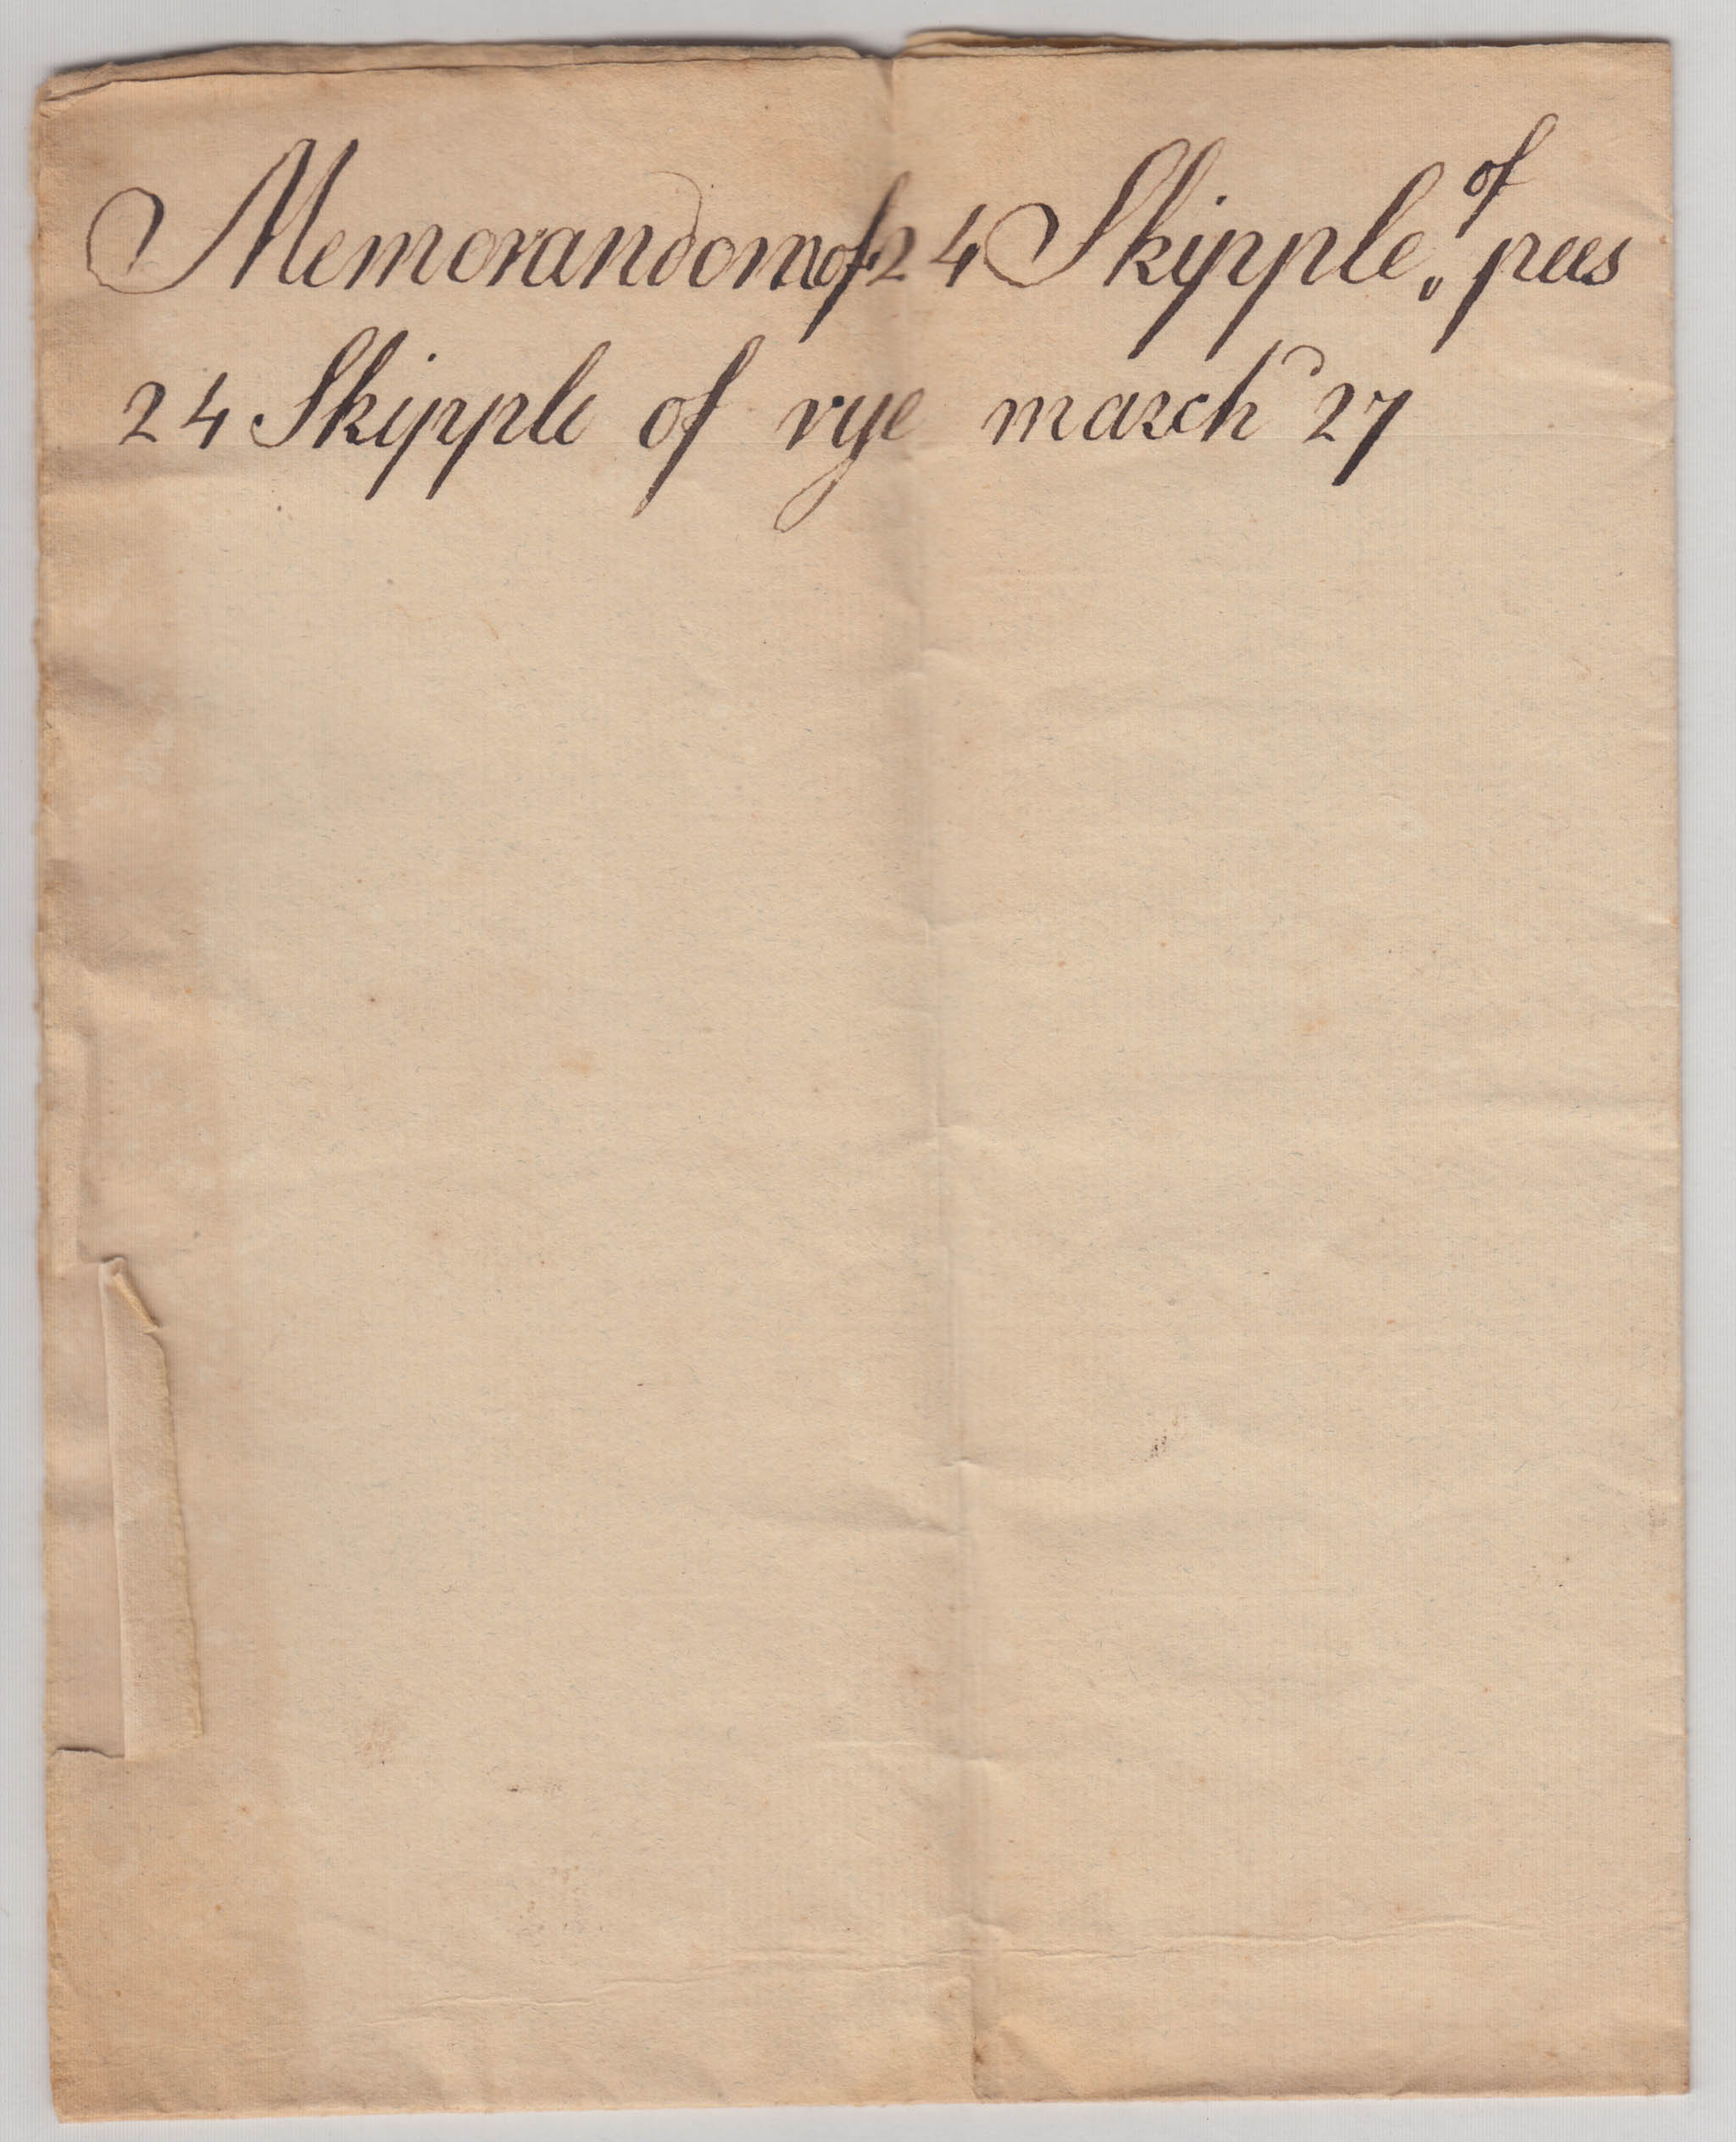 Memorandom of 24 Skipple of pees
24 Skipple of rye march 27